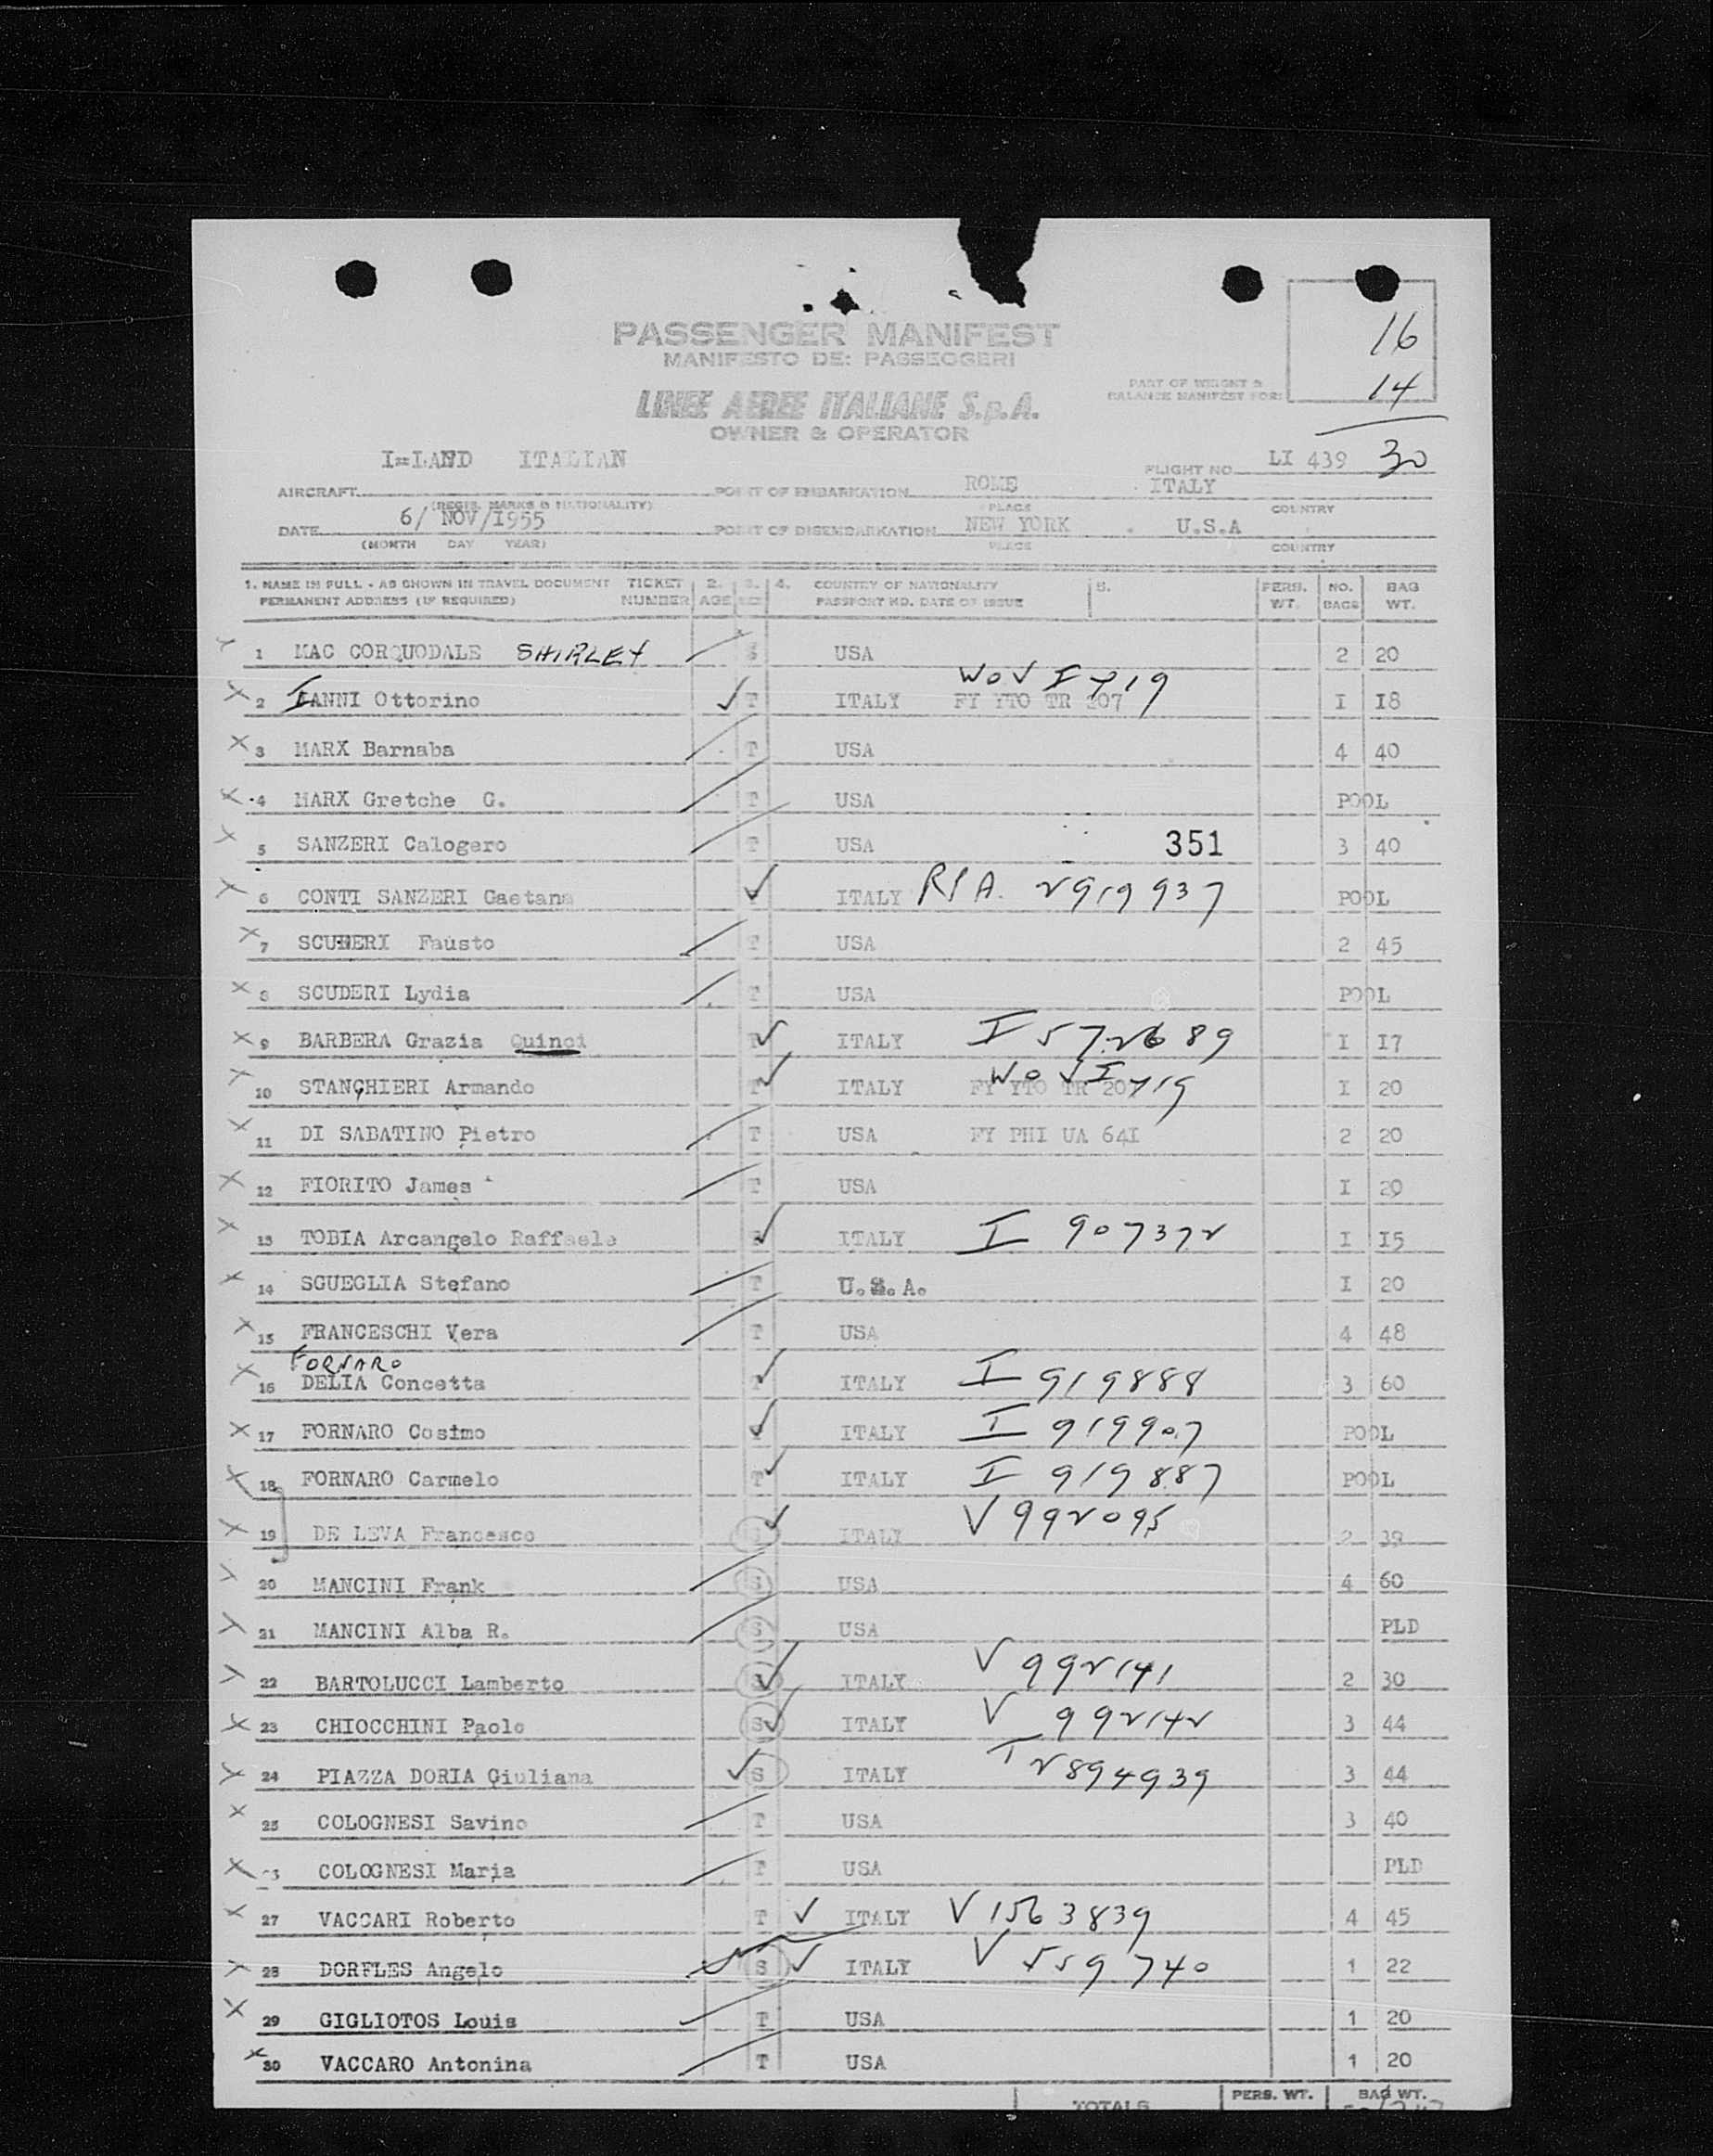 16
14
30
PASSENGER MANIFEST
MANIFESTO DE: PASSEGGERI
PART OF WEIGHT &
BALANCE MANIFEST FOR:
LINEE AEREE ITALIANE S.p.A.
OWNER & OPERATOR
I=LAND ITALIAN FLIGHT NO. LI 439
AIRCRAFT POINT OF EMBARKATION ROME ITALY
(REGIS. MARKS & NATIONALITY) PLACE COUNTRY
DATE 6/ NOV/1955 POINT OF DISEMBARKATION NEW YORK . U.S.A
(MONTH DAY YEAR) PLACE COUNTRY
1. NAME IN FULL - AS SHOWN IN TRAVEL DOCUMENT TICKET 2. 3. 4. COUNTRY OF NATIONALITY 5. PERS. NO. BAG
PERMANENT ADDRESS (IF REQUIRED) NUMBER AGE SEX PASSPORT NO. DATE OF ISSUE WT. BAGS WT.
X 1 MAC CORQUODALE SHIRLEY S USA 2 20
X 2 IANNI Ottorino T ITALY FY YTO TR 207 WOV I 719 I I8
X 3 MARX Barnaba T USA 4 40
X 4 MARX Gretche G. T USA POOL
X 5 SANZERI Calogero T USA 351 3 40
X 6 CONTI SANZERI Gaetana ITALY RIA. 2919937 POOL
X 7 SCUDERI Fausto T USA 2 45
X 8 SCUDERI Lydia T USA POOL
X 9 BARBERA Grazia Quinci T ITALY I 572689 I I7
X 10 STANCHIERI Armando T ITALY FY YTO TR 20 WOV I 719 I 20
X 11 DI SABATINO Pietro T USA FY PHI UA 64I 2 20
X 12 FIORITO James T USA I 29
X 13 TOBIA Arcangelo Raffaele ITALY I 907372 I I5
X 14 SGUEGLIA Stefano T U.S.A. I 20
X 15 FRANCESCHI Vera T USA 4 48
FORNARO
X 16 DELIA Concetta T ITALY I 919888 3 60
X 17 FORNARO Cosimo ITALY I 919907 POOL
X 18 FORNARO Carmelo T ITALY I 919887 POOL
X 19 DE LEVA Francesco S ITALY V 992095 2 39
X 20 MANCINI Frank S USA 4 60
X 21 MANCINI Alba R. S USA PLD
X 22 BARTOLUCCI Lamberto S ITALY V 992141 2 30
X 23 CHIOCCHINI Paolo S ITALY V 992142 3 44
X 24 PIAZZA DORIA Giuliana S ITALY I 2894939 3 44
X 25 COLOGNESI Savino T USA 3 40
X COLOGNESI Maria T USA PLD
X 27 VACCARI Roberto T ITALY V 1563839 4 45
X 28 DORFLES Angelo S ITALY V 559740 1 22
X 29 GIGLIOTOS Louis T USA 1 20
X 30 VACCARO Antonina T USA 1 20
TOTALS PERS. WT. BAG WT.